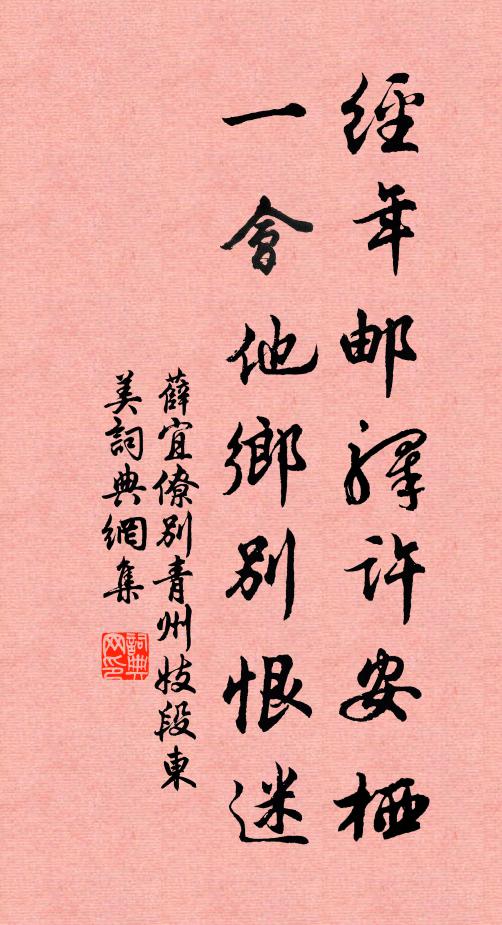 經年邮驛許安栖
一會他鄉別恨迷
薛宜僚別青州妓段東
美詞典網集
詞典网印